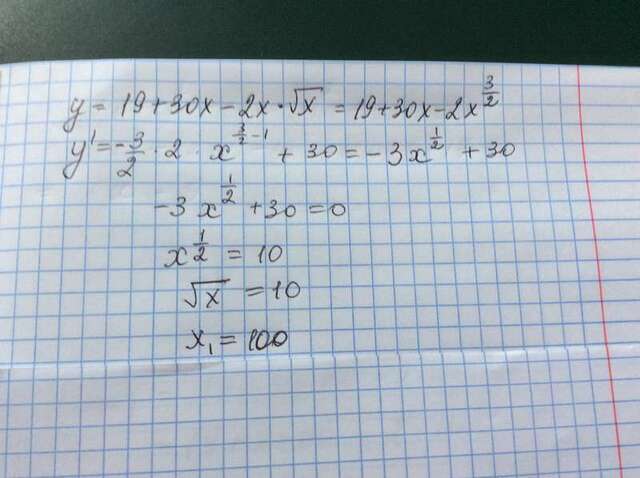 y = 19+30x-2x·√x = 19+30x-2x^{3/2}
y' = -3/2 · 2 · x^{3/2-1} + 30 = -3x^{1/2} + 30
-3x^{1/2} + 30 = 0
x^{1/2} = 10
√x = 10
x₁ = 100